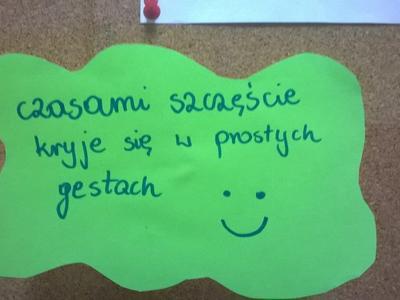 czasami szczęście
kryje się w prostych
gestach